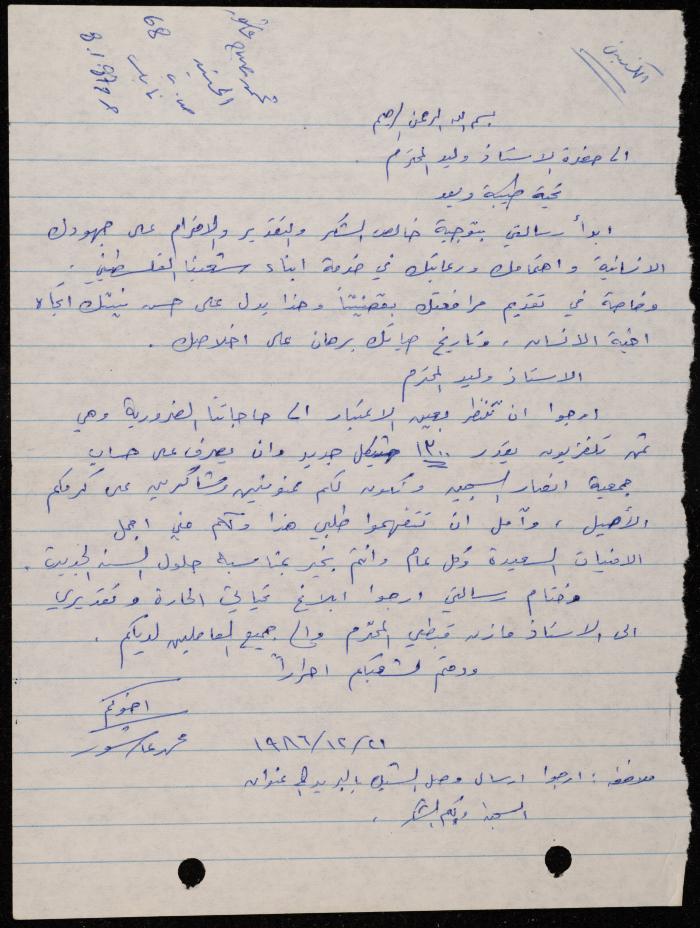 محمد صباح عاشور
الجنيد
ص. ب 68
نابلس
بسم الله الرحمن الرحيم
الى حضرة الاستاذ وليد المحترم
تحية طيبة وبعد
ابدأ رسالتي بتوجية خالص الشكر والتقدير والاحترام على جهودك
الانسانية واهتمامك ورعايتك في خدمة ابناء شعبنا الفلسطيني .
وخاصة في تقديم مرافعتك بقضيتنا وهذا يدل على حسن نيتك اتجاه
اخية الانسان ، وتاريخ حياتك برهان على اخلاصك .
الاستاذ وليد المحترم
ارجوا ان تنظر بعين الاعتبار الى حاجاتنا الضرورية وهي
ثمن تلفزيون يقدر ١٣٠٠ شيكل جديد وان يصرف على حساب
جمعية انصار السجين ونكون لكم ممنونين وشاكرين على كرمكم
الأصيل ، وآمل ان تتفهموا طلبي هذا ولكم مني اجمل
الامنيات السعيدة وكل عام وانتم بخير بمناسبة حلول السنه الجديدة .
وختام رسالتي ارجوا ابلاغ تحياتي الحارة وتقديري
الى الاستاذ مازن قبطي المحترم والى جميع العاملين لديكم .
ودمتم لشعبكم احراراً
اخوكم
محمد عاشور
١٩٨٦/١٢/٢١
ملاحظه : ارجوا ارسال وصل الشيك بالبريد الى عنوان
السجن ولكم الشكر .